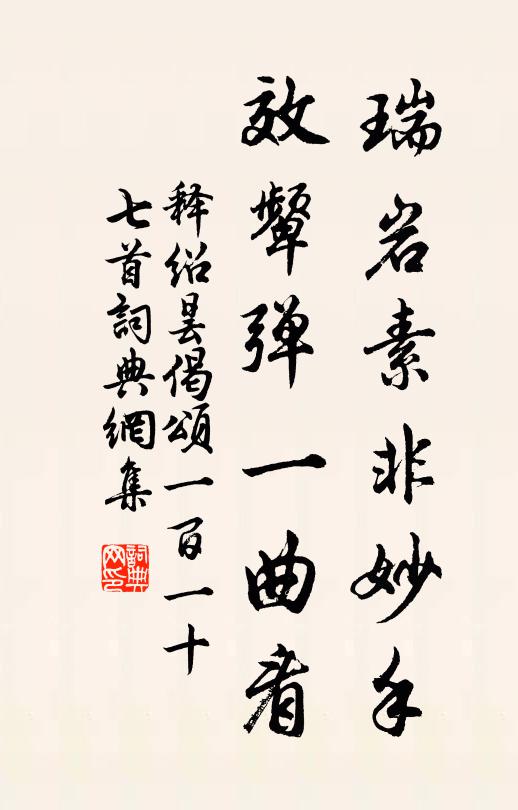 瑞岩素非妙手
效颦弹一曲看
释绍昙偈颂一百一十
七首詞典網集
詞典
网印